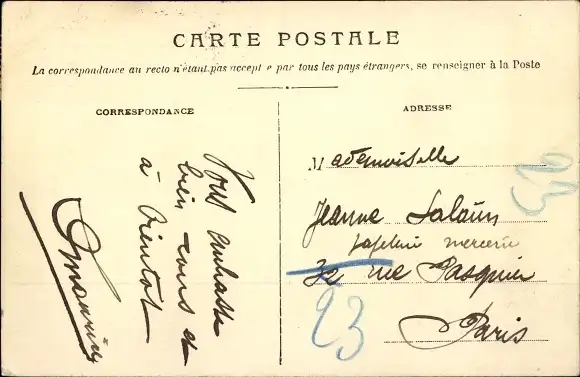 CARTE POSTALE
La correspondance au recto n'étant pas accept e par tous les pays étrangers, se renseigner à la Poste
CORRESPONDANCE
Vous embrasse
bien tous et
à bientôt
ADRESSE
Mademoiselle
Jeanne Salaün
mercerie
32 rue Pasquier
Paris
23